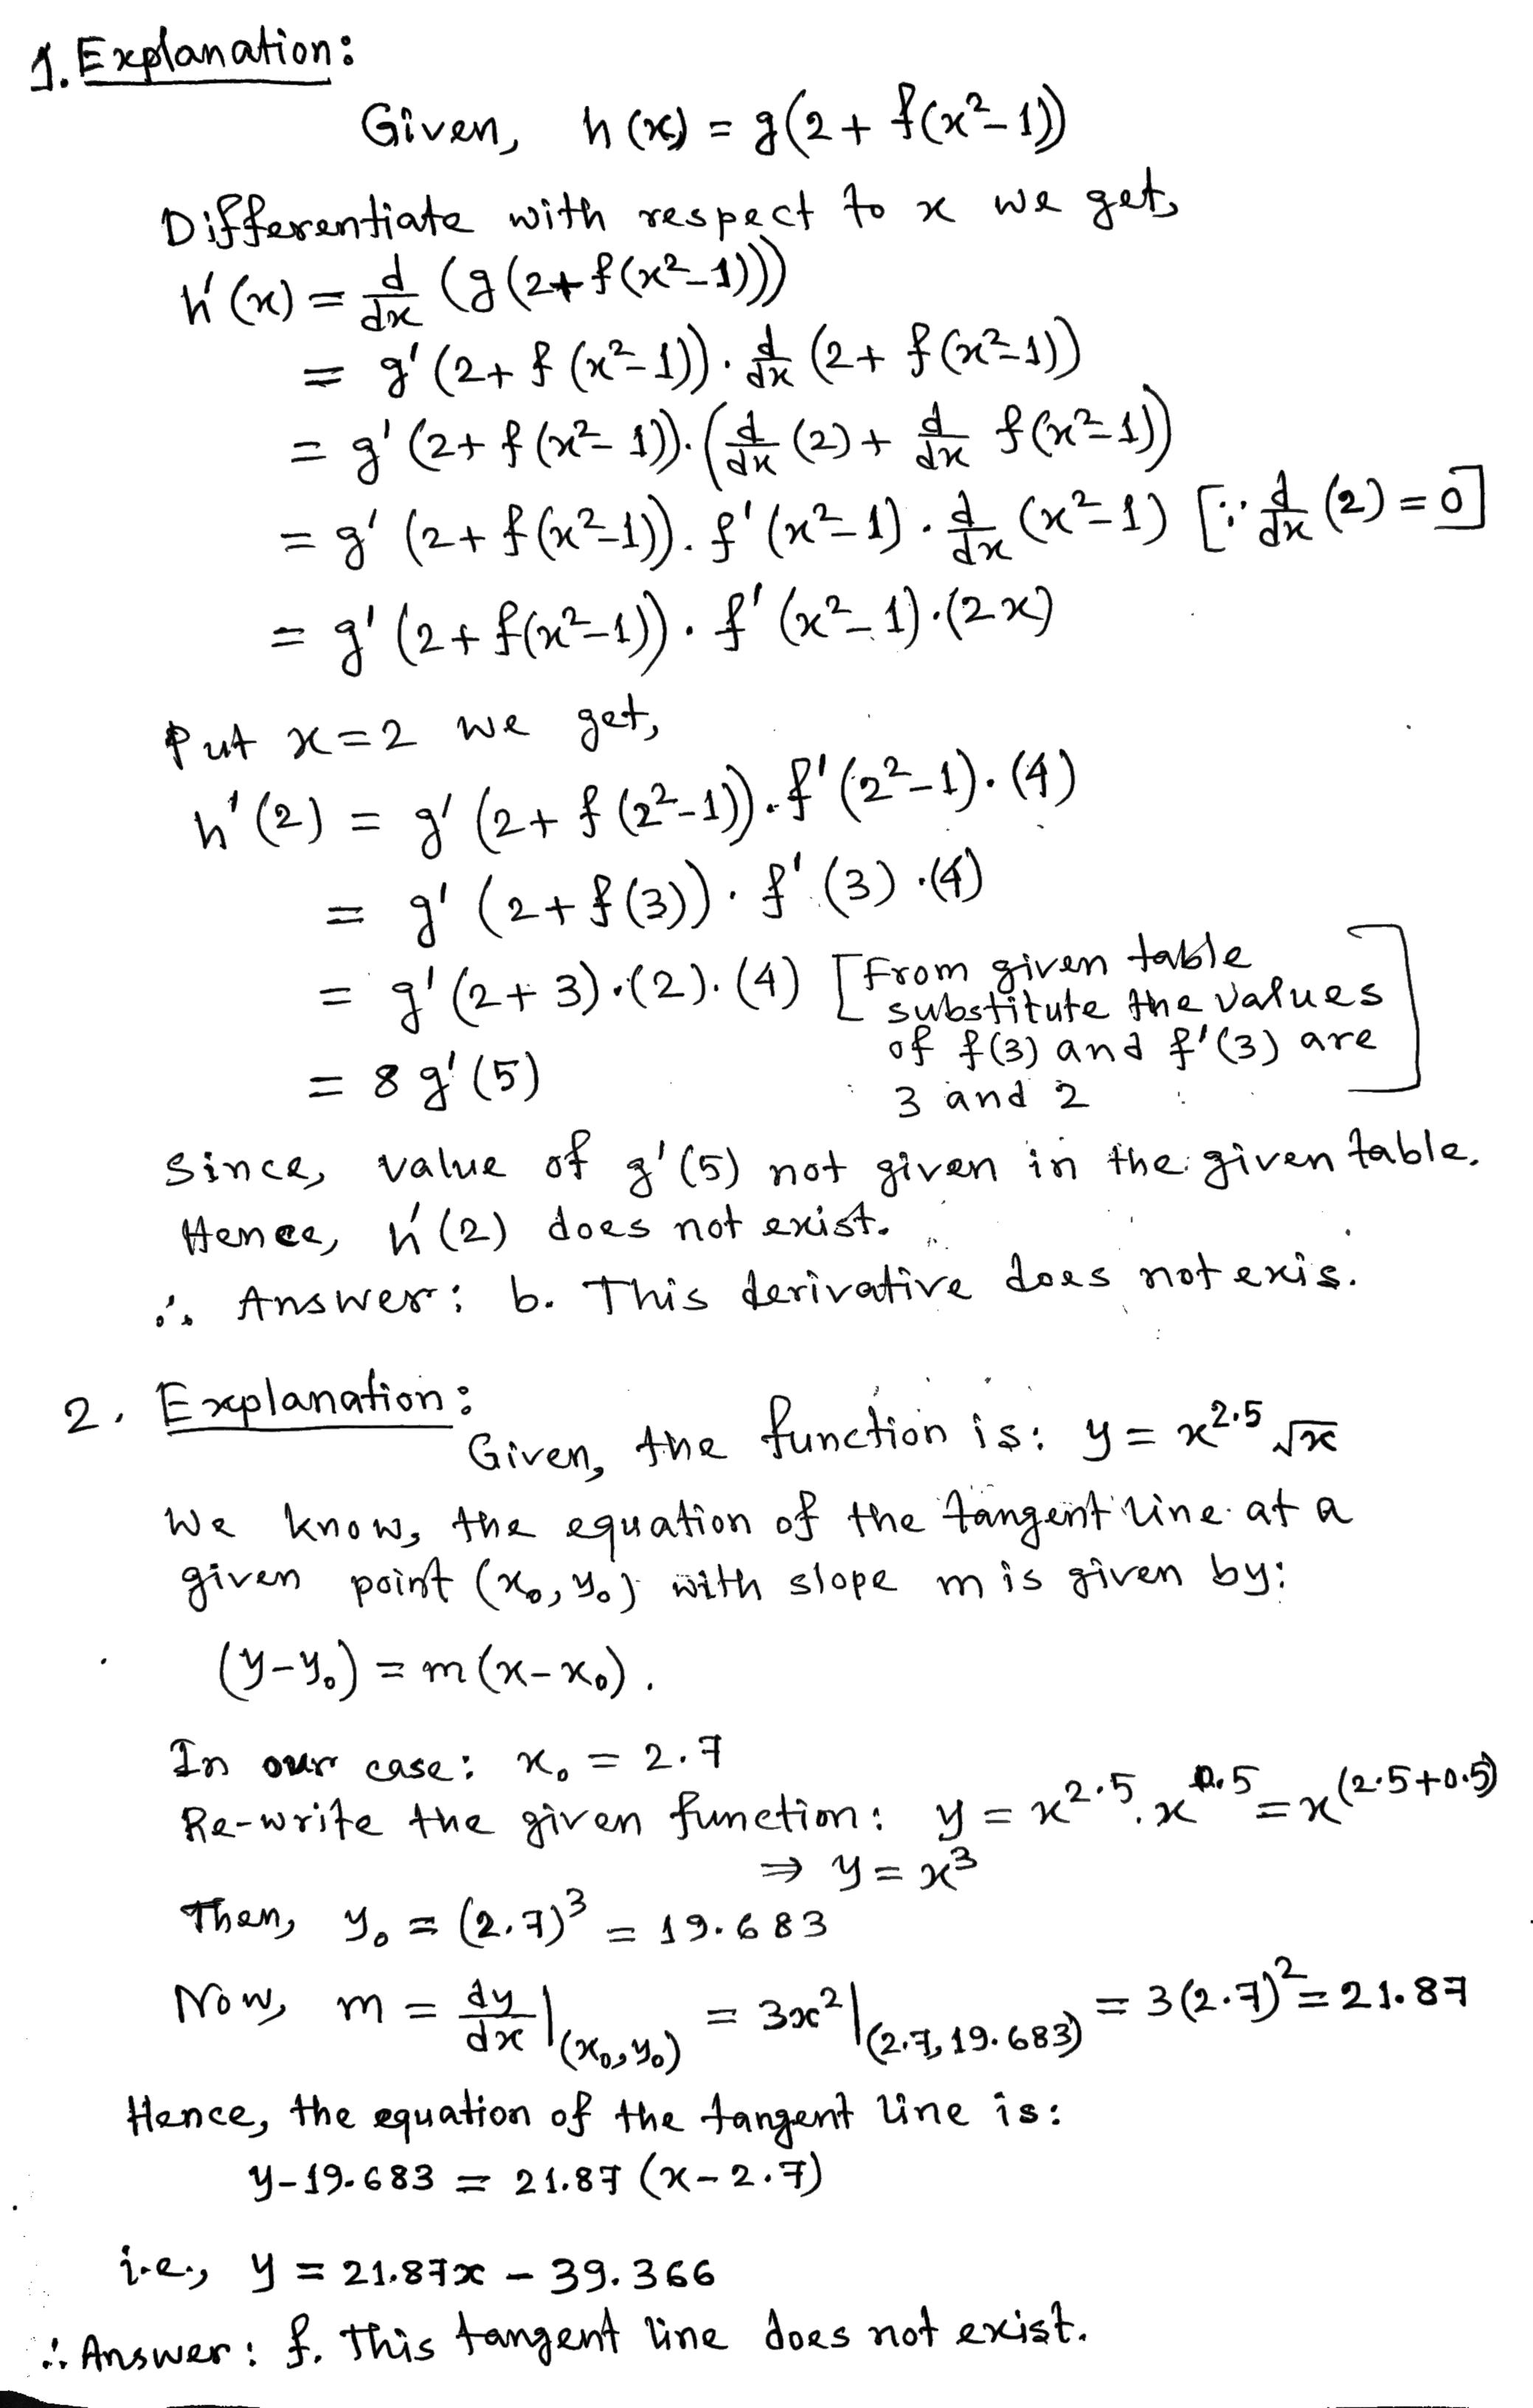 1. Explanation:
Given, h(x) = g(2 + f(x²-1))
Differentiate with respect to x we get,
h'(x) = d/dx (g(2+f(x²-1)))
= g'(2+f(x²-1)) · d/dx (2+ f(x²-1))
= g'(2+f(x²-1)) · (d/dx (2) + d/dx f(x²-1))
= g'(2+f(x²-1)) · f'(x²-1) · d/dx (x²-1) [∵ d/dx (2) = 0]
= g'(2+f(x²-1)) · f'(x²-1) · (2x)
Put x=2 we get,
h'(2) = g'(2+f(2²-1)) · f'(2²-1) · (4)
= g'(2+f(3)) · f'(3) · (4)
= g'(2+3) · (2) · (4) [From given table
substitute the values
of f(3) and f'(3) are
3 and 2]
= 8 g'(5)
Since, value of g'(5) not given in the given table.
Hence, h'(2) does not exist.
∴ Answer: b. This derivative does not exis.
2. Explanation:
Given, the function is: y = x^2.5 √x
We know, the equation of the tangent line at a
given point (x₀, y₀) with slope m is given by:
(y-y₀) = m(x-x₀).
In our case: x₀ = 2.7
Re-write the given function: y = x^2.5 . x^0.5 = x^(2.5+0.5)
⇒ y = x³
Then, y₀ = (2.7)³ = 19.683
Now, m = dy/dx |(x₀, y₀) = 3x² |(2.7, 19.683) = 3(2.7)² = 21.87
Hence, the equation of the tangent line is:
y-19.683 = 21.87 (x-2.7)
i.e., y = 21.87x - 39.366
∴ Answer: f. This tangent line does not exist.